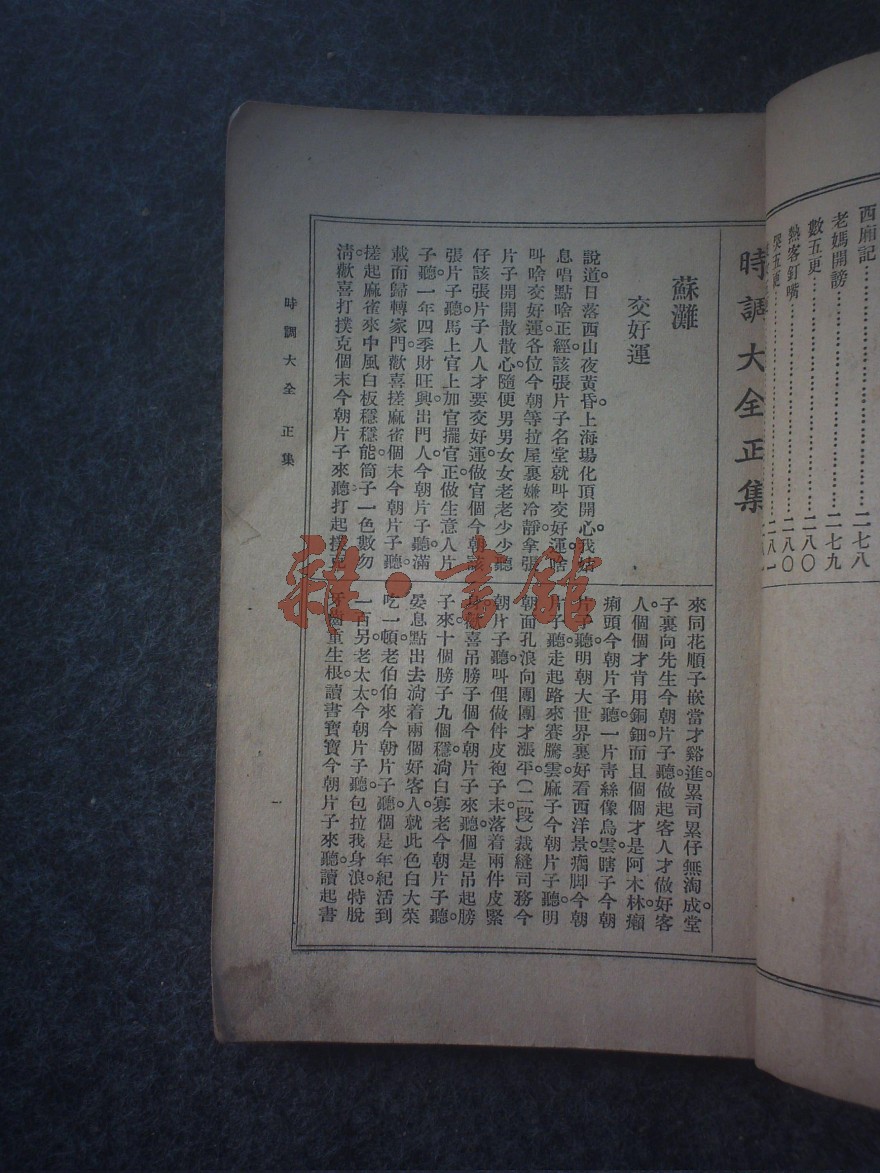 西廂記……………二七八
老媽開謗……………二七九
數五更……………二八〇
熱客釘嘴……………二八〇
哭五更……………二八一
時調大全正集
蘇灘
交好運
說道日落西山夜黃昏。上海場化頂開心。我姑
息唱點啥正經該張片子名堂就叫交好運。啥
叫啥交好運。各位今朝等拉屋裏嫌冷靜。拿張
片子開開散散心。隨便男男女女老老少少聽
仔該張片子人人才要交好運。做官個今朝該
張片子聽。馬上官上加官擺官正。做生意人片
子聽。一年四季財旺興。出門人今朝片子聽。滿
載而歸轉家門。歡喜搓麻雀個末今朝片子聽。
搓起麻雀來中風白板穩穩能。筒子一色數勿
清。歡喜打撲克個末今朝片子來聽。打起撲克
來同花順子嵌當才谿進。累司累仔無淘成。堂
子裏向先生今朝片子聽。做起客人才做好客
人。個個才肯用銅鈿。而且個個才是阿木林。癩
痢頭今朝片子聽。一片靑絲像烏雲。瞎子今朝
片子聽。明朝大世界裏好看西洋景。癘脚今朝
片子聽。走起路來賽騰雲。麻子今朝片子聽。明
朝面孔浪向團團才漲平。(二段)裁縫司務今
朝片子聽。叫俚做件皮袍子末落着兩件皮緊
身。歡喜吊膀子個今朝片子來聽。個是吊起膀
子來十個膀子九個穩。淌白寡老今朝片子聽。
晏息點出去淌着兩個好客人。就此色白大菜
吃一頓。老伯伯來今朝片子聽。個是年紀活到
一百另。老太太今朝片子聽。包拉我身浪特脫
牙齒重生根。讀書寶寶今朝片子來聽。讀起書
時調大全 正集
一
雜·書館